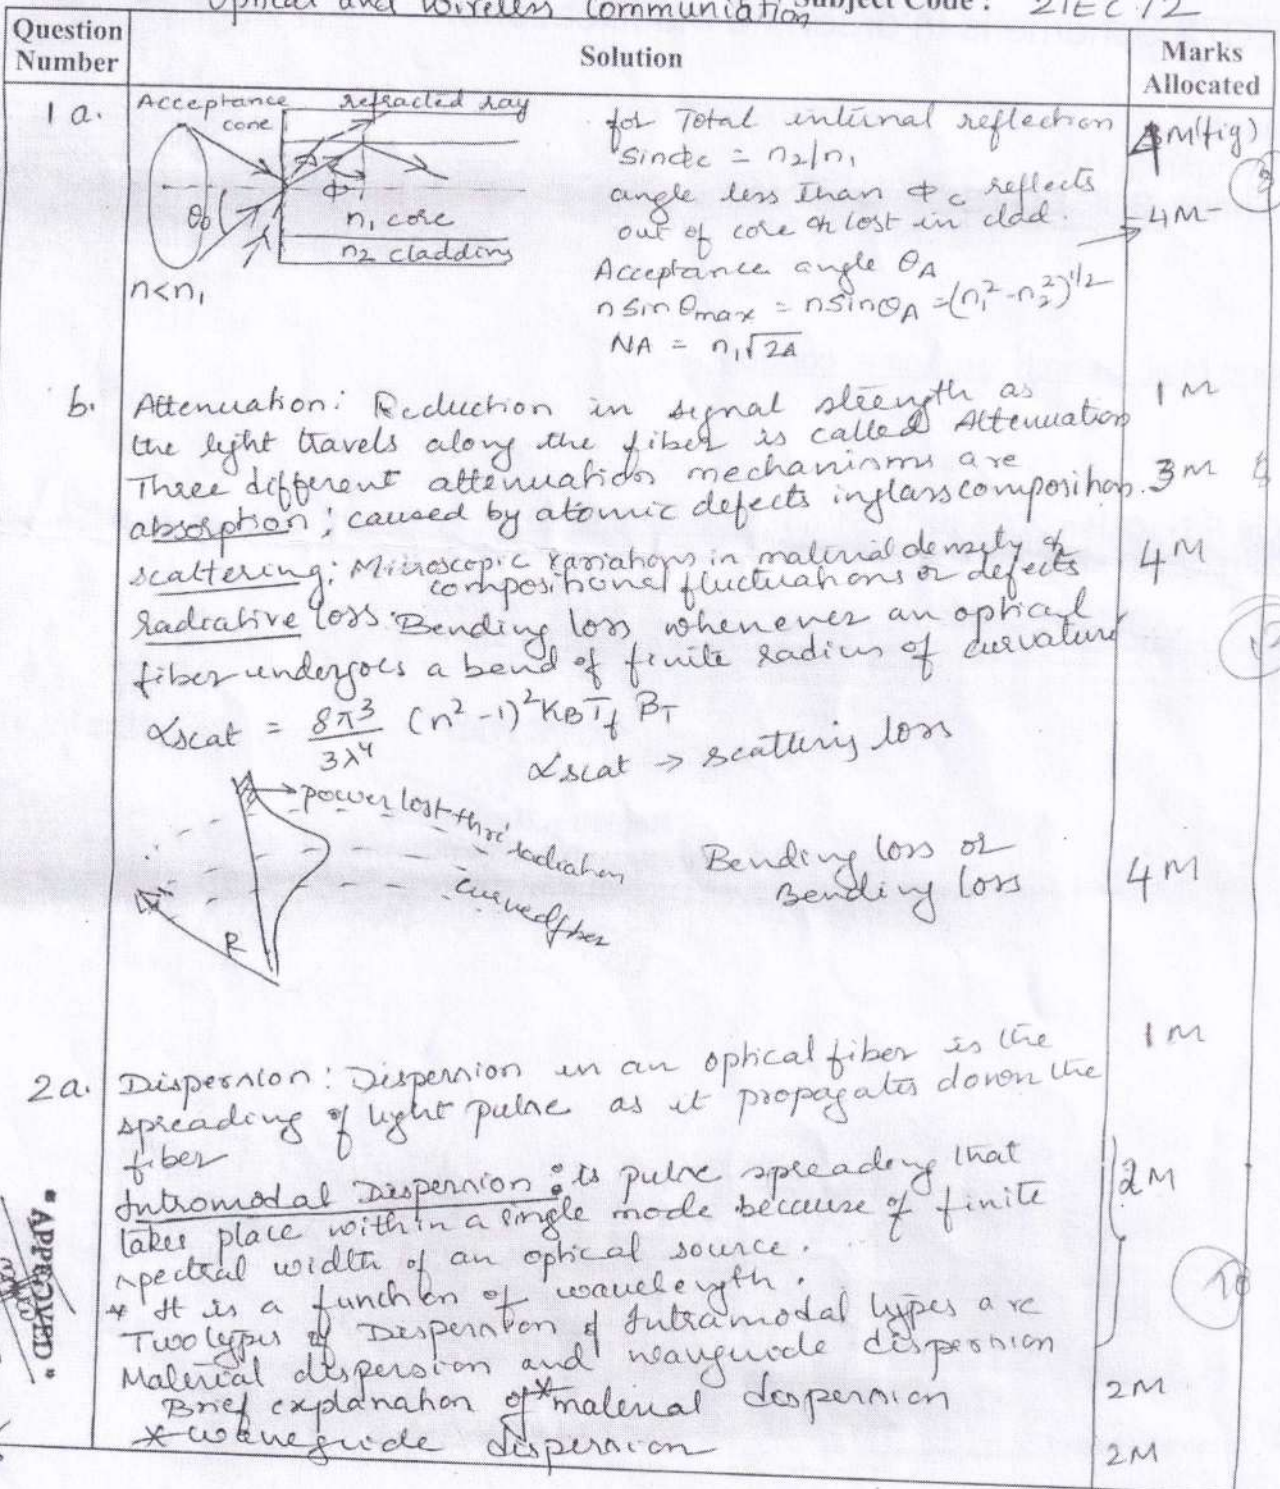 Optical and Wireless Communiation Subject Code : 21EC72
Question Number
Solution
Marks Allocated
1 a.
Acceptance cone
refracted ray
θ0
Φ
n1 core
n2 cladding
n<n1
for Total internal reflection
sinΦc = n2/n1
angle less than Φc reflects
out of core or lost in clad.
Acceptance angle θA
n sin θmax = n sinθA = (n1² - n2²)^1/2
NA = n1√2Δ
4M(fig)
4M
b.
Attenuation: Reduction in signal strength as
the light travels along the fiber is called Attenuation
Three different attenuation mechanisms are
absorption; caused by atomic defects in glass composition.
scattering; Microscopic variations in material density or
compositional fluctuations or defects
radiative loss: Bending loss whenever an optical
fiber undergoes a bend of finite radius of curvature
αscat = 8π³/3λ⁴ (n² -1)² KBTf BT
αscat → scattering loss
1M
3M
4M
power lost thro radiation
curved fiber
R
Bending loss or
Bending loss
4M
2a.
Dispersion: Dispersion in an optical fiber is the
spreading of light pulse as it propagates down the
fiber
Intromodal Dispersion: is pulse spreading that
takes place within a single mode because of finite
spectral width of an optical source.
* It is a function of wavelength.
Two types of Dispersion of Intramodal types are
Material dispersion and waveguide dispersion
Brief explanation of * material dispersion
* waveguide dispersion
1M
2M
10
2M
2M
APPROVED